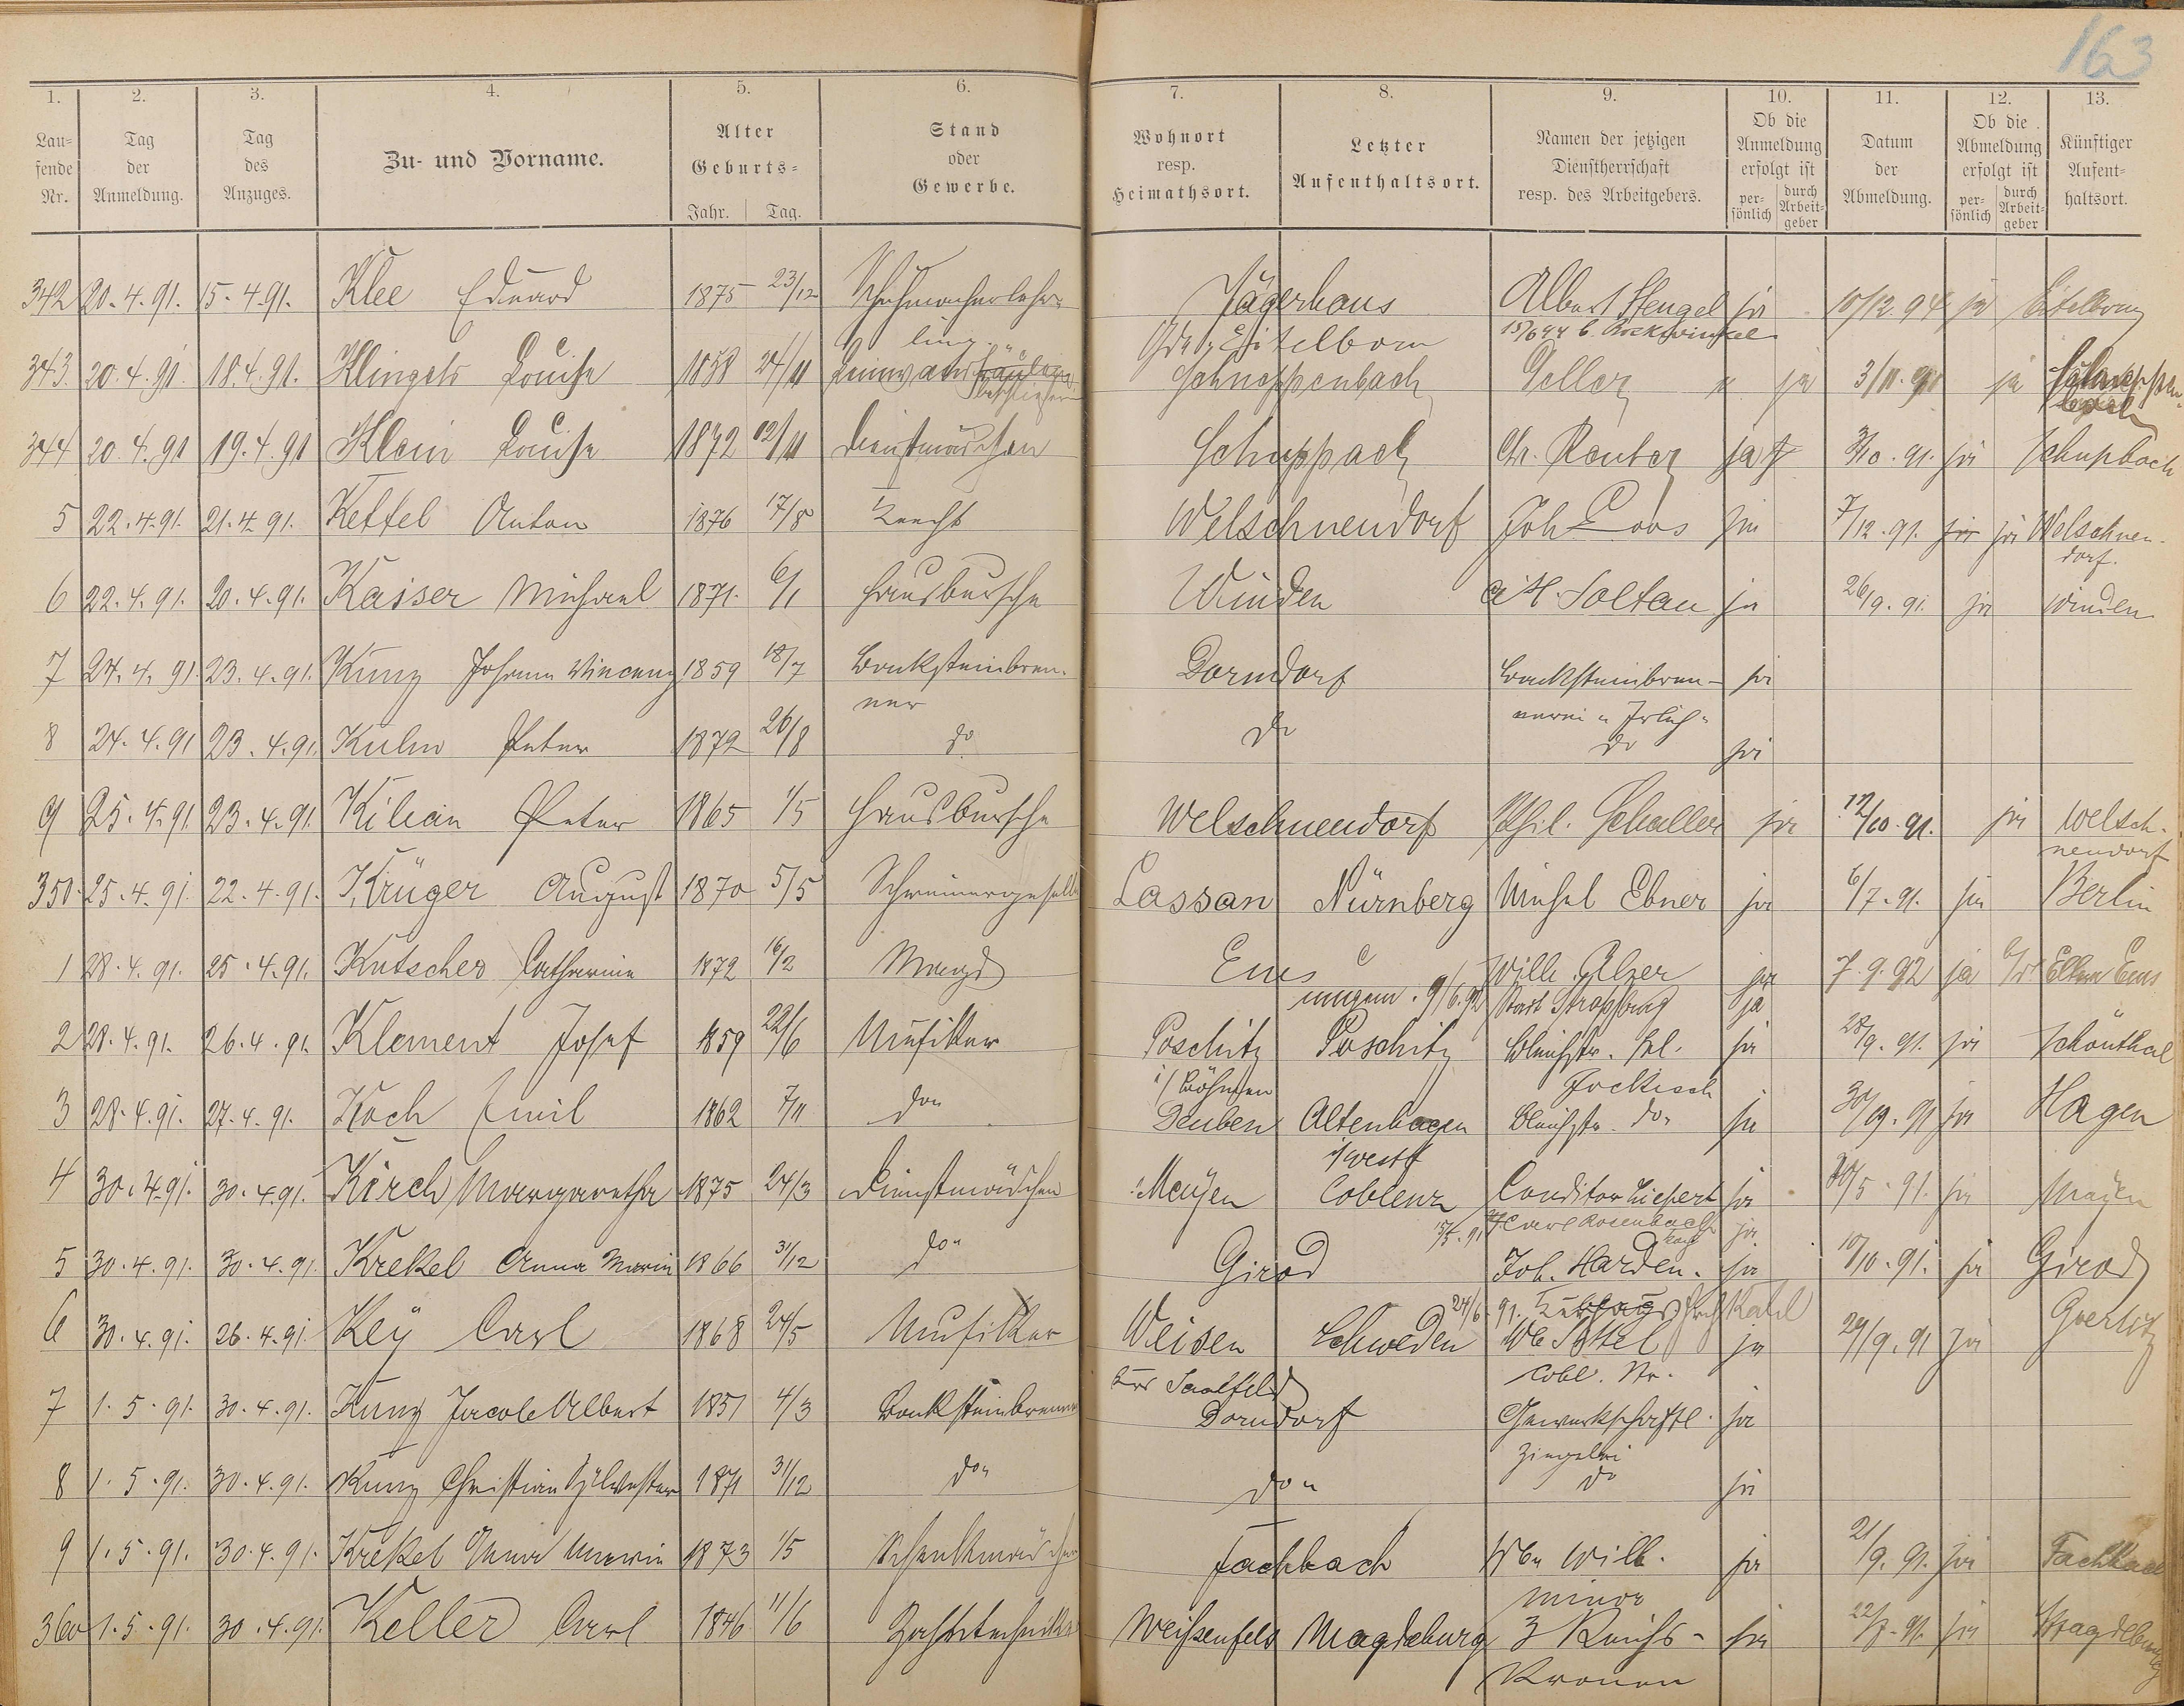 163
1. 2. 3. 4. 5. 6. 7. 8. 9. 10. 11. 12. 13.
Lau-
fende
Nr.
Tag
der
Anmeldung.
Tag
des
Anzuges.
Zu- und Vorname.
Alter
Geburts-
Jahr. Tag.
Stand
oder
Gewerbe.
Wohnort
resp.
Heimathsort.
Letzter
Aufenthaltsort.
Namen der jetzigen
Dienstherrschaft
resp. des Arbeitgebers.
Ob die
Anmeldung
erfolgt ist
per-
sönlich
durch
Arbeit-
geber
Datum
der
Abmeldung.
Ob die
Abmeldung
erfolgt ist
per-
sönlich
durch
Arbeit-
geber
Künftiger
Aufent-
haltsort.
342 20.4.91. 15.4.91. Klee Eduard 1875 23/12 Schuhmacherlehr- Jägerhaus Albert Stengel ja 10/12.94 ja Eitelborn
ling Eitelborn
343. 20.4.91. 18.4.91. Klingels Louise 1858 24/11 Schneppenbach Geller ja 3/11.91 ja Schneppen-
bach
344 20.4.91 19.4.91 Klein Louise 1872 12/11 Dienstmädchen Schuppach Chr. Reuter ja 3/10.91. ja Schupbach
5 22.4.91. 21.4.91. Kettel Anton 1876 17/8 Knecht Welschneudorf Joh Loos ja 7/12.91. ja ja Welschneu-
dorf.
6 22.4.91. 20.4.91. Kaiser Michael 1871. 6/1 Hausbursche Winden H. Soltau ja 26/9.91. ja Winden
7 24.4.91. 23.4.91. Kunz Johann Vincenz 1859 18/7 Backsteinbren- Dorndorf Backsteinbren- ja
ner nerei "Irlich"
8 24.4.91 23.4.91. Kuhn Peter 1872 26/8 do do do ja
9 25.4.91. 23.4.91. Kilian Peter 1865 1/5 Hausbursche Welschneudorf Phil. Schaller ja 12/10.91. ja Welsch-
neudorf
350. 25.4.91. 22.4.91. Krüger August 1870 5/5 Schreinergeselle Lassan Nürnberg Michel Ebner ja 6/7.91. ja Berlin
1 28.4.91. 25.4.91. Kutscher Catharina 1872 16/2 Magd Ems Wilh. Alzer ja 7.9.92 ja Ems
9/6.92 Stadt Straßburg ja
2 28.4.91. 26.4.91. Klement Josef 1859 22/6 Musiker Poschitz Poschitz Bleichstr. bei ja 28/9.91. ja Schönthal
i/Böhmen Jockisch
3 28.4.91. 27.4.91. Koch Emil 1862 7/11 do" Deuben Altenhagen Bleichstr. do" ja 30/9.91 ja Hagen
i/westf
4 30.4.91. 30.4.91. Kirch Margaretha 1875 24/3 Dienstmädchen Mayen Coblenz Conditor Liepert ja 30/5.91. ja Mayen
15/5.91 Carl Rosenbach ja
5 30.4.91. 30.4.91. Krekel Anna Maria 1866 31/12 do" Girod Joh. Harden. ja 10/10.91. ja Girod
24/6.91.
6 30.4.91. 26.4.91. Key Carl 1868 24/5 Musiker Weisen Schweden ja 29/9.91 ja Goerlitz
Saalfeld Cobl. Str.
7 1.5.91. 30.4.91. Kunz Jacob Albert 1851 4/3 Backsteinbrenner Dorndorf Gewerkschaftl. ja
Ziegelei
8 1.5.91. 30.4.91. Kunz Christian Sylvester 1871 31/12 do" do" do ja
9 1.5.91. 30.4.91. Krekel Anna Maria 1873 1/5 Schenkmädchen Fachbach Wilh. ja 21/9.91. ja Fachbach
Minor
360 1.5.91. 30.4.91. Keller Carl 1846 11/6 Zahntechniker Weißenfels Magdeburg 3 Reichs- ja 22/7.91. ja Magdeburg
Kronen